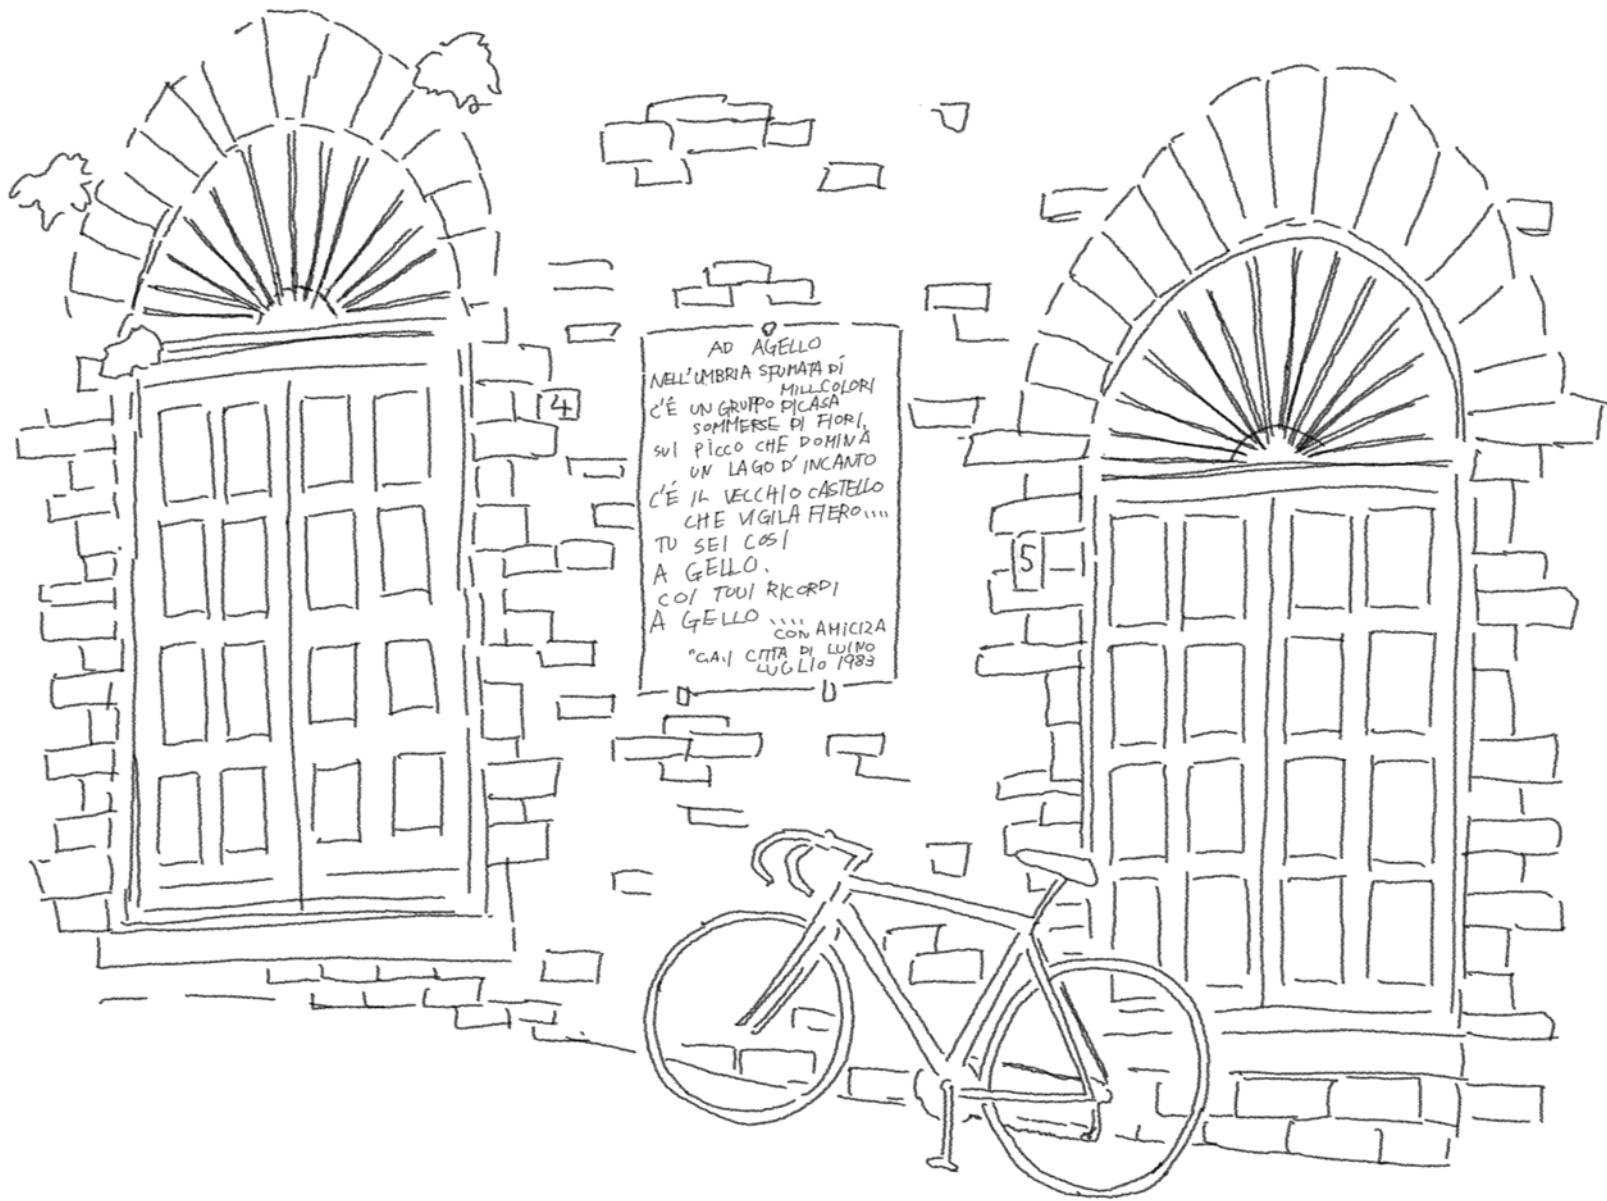 4
AD AGELLO
NELL'UMBRIA SFUMATA DÍ
MILLCOLORI
C'É UN GRUPPO DICASA
SOMMERSE DI FIORI,
SUL PÌCCO CHE DOMINA
UN LAGO D'INCANTO
C'É IL VECCHIO CASTELLO
CHE VIGILA FIERO....
TU SEI COSI
A GELLO.
COI TOUI RICORDI
A GELLO ....
CON AMICIZA
"G.A.I CITTA DI LUINO
LUGLIO 1983
5